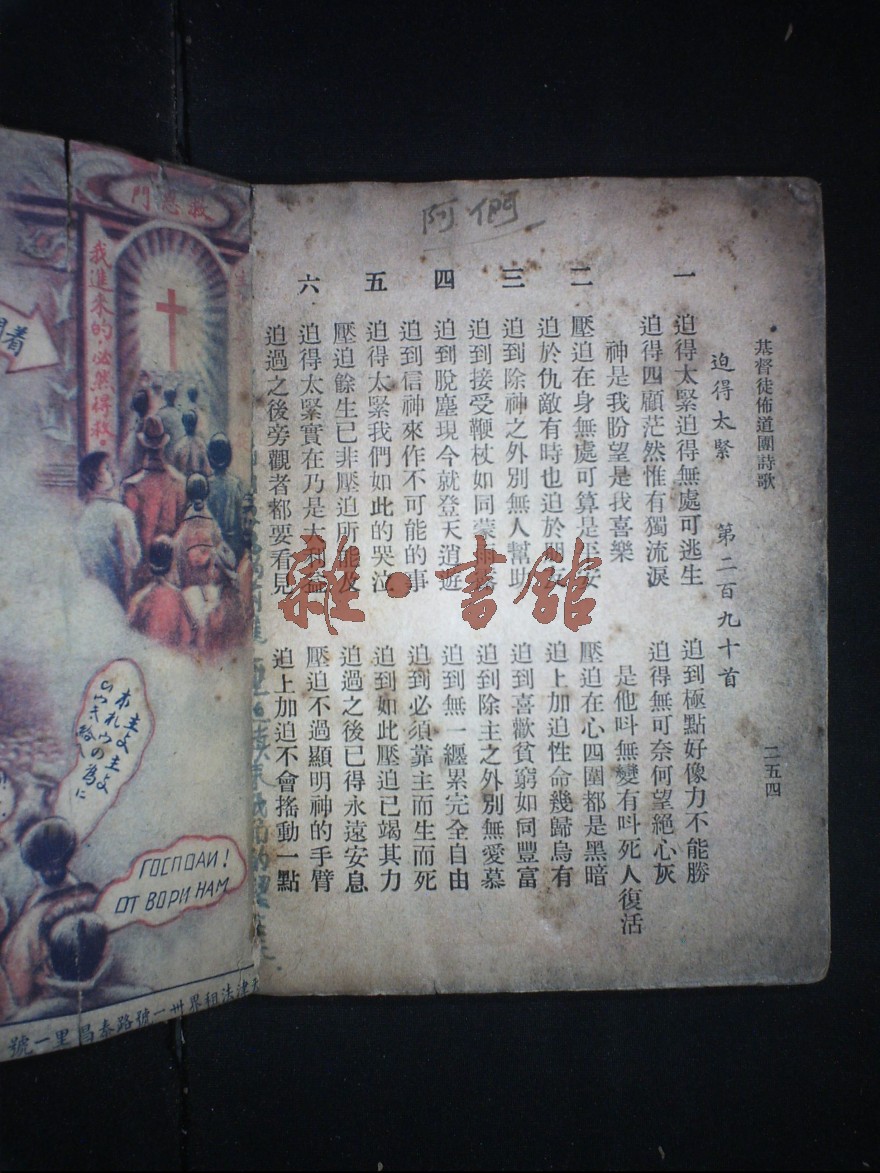 阿們
基督徒佈道團詩歌 二五四
迫得太緊 第二百九十首
一 迫得太緊迫得無處可逃生 迫到極點好像力不能勝
迫得四顧茫然惟有獨流淚 迫得無可奈何望絕心灰
神是我盼望是我喜樂 是他叫無變有叫死人復活
二 壓迫在身無處可算是平安 壓迫在心四圍都是黑暗
迫於仇敵有時也迫於 迫上加迫性命幾歸烏有
三 迫到除神之外別無人幫助 迫到喜歡貧窮如同豐富
迫到接受鞭杖如同蒙 迫到除主之外別無愛慕
四 迫到脫塵現今就登天逍遊 迫到無一纏累完全自由
迫到信神來作不可能的事 迫到必須靠主而生而死
五 迫得太緊我們如此的哭泣 迫到如此壓迫已竭其力
壓迫餘生已非壓迫所能及 迫過之後已得永遠安息
六 迫得太緊實在乃是大利益 壓迫不過顯明神的手臂
迫過之後旁觀者都要看見 迫上加迫不會搖動一點
雜·書館
救恩門
我進來的,必然得救。
着
主よ主よ
の為に
ГОСПОДИ!
ОТВОРИ НАМ
津法租界卅一號路泰昌里一號